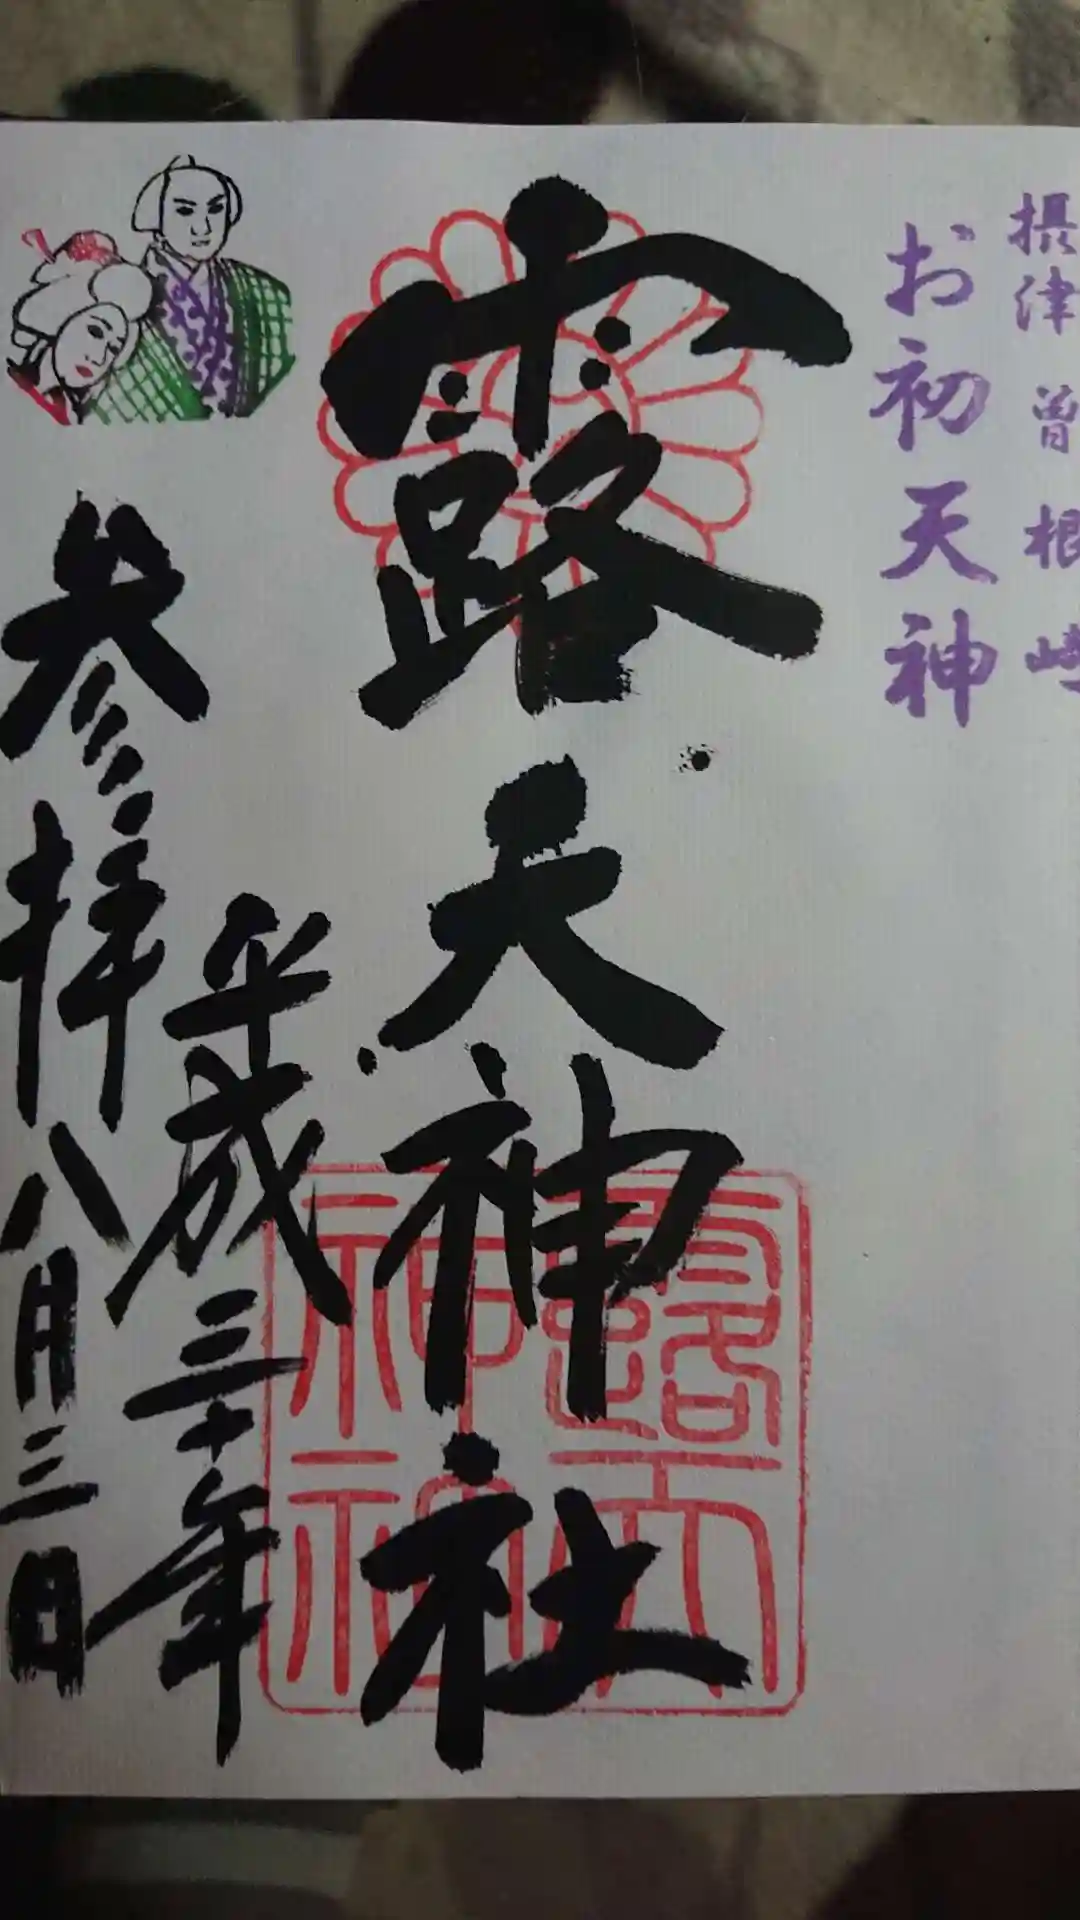 摂津 曽根崎
お初天神
露天神社
平成三十年
参拝八月三日
露天
神社